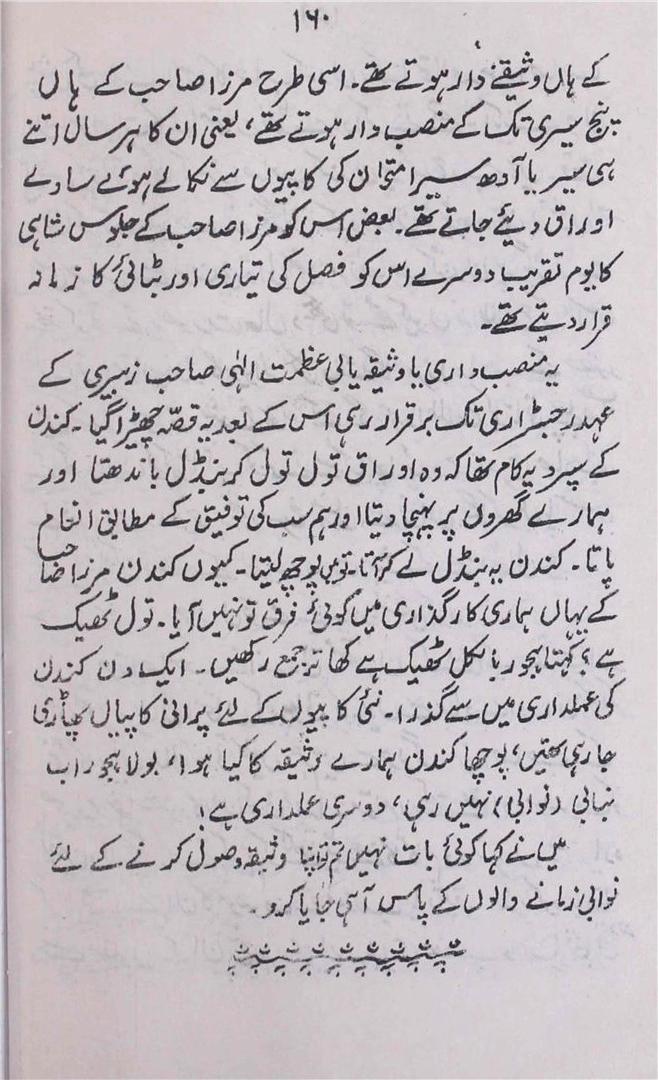 ۱۶۰
کے ہاں وثیقے دار ہوتے تھے۔ اسی طرح مرزا صاحب کے ہاں
پنج سیری تک کے منصب دار ہوتے تھے، یعنی ان کا ہر سال اتنے
ہی سیر یا آدھ سیر امتحان کی کاپیوں سے نکالے ہوئے سادے
اوراق دیئے جاتے تھے۔ بعض اس کو مرزا صاحب کے جلوس شاہی
کا یوم تقریب دوسرے اس کو فصل کی تیاری اور بٹائی کا زمانہ
قرار دیتے تھے۔
یہ منصب داری یا وثیقہ یابی عظمت الٰہی صاحب زبیری کے
عہد رجسٹراری تک برقرار رہی اس کے بعد یہ قصّہ چھیڑا گیا۔ کندن
کے سپرد یہ کام تھا کہ وہ اوراق تول تول کر بنڈل باندھتا اور
ہمارے گھروں پر پہنچا دیتا اور ہم سب کی توفیق کے مطابق انعام
پاتا۔ کندن یہ بنڈل لے کر آتا۔ تو میں پوچھ لیتا۔ کیوں کندن مرزا صاحب
کے یہاں ہماری کارگذاری میں کوئی فرق تو نہیں آیا۔ تول ٹھیک
ہے؟ کہتا ہجور بالکل ٹھیک ہے کھاتر جمع رکھیں۔ ایک دن کندن
کی عملداری میں سے گذرا۔ نئی کاپیوں کے لئے پرانی کاپیاں پھاڑی
جا رہی تھیں، پوچھا کندن ہمارے وثیقہ کا کیا ہوا، بولا ہجور اب
نبابی (نوابی) نہیں رہی، دوسری عملداری ہے!
میں نے کہا کوئی بات نہیں تم تو اپنا وثیقہ وصول کرنے کے لئے
نوابی زمانے والوں کے پاس آ ہی جایا کرو۔